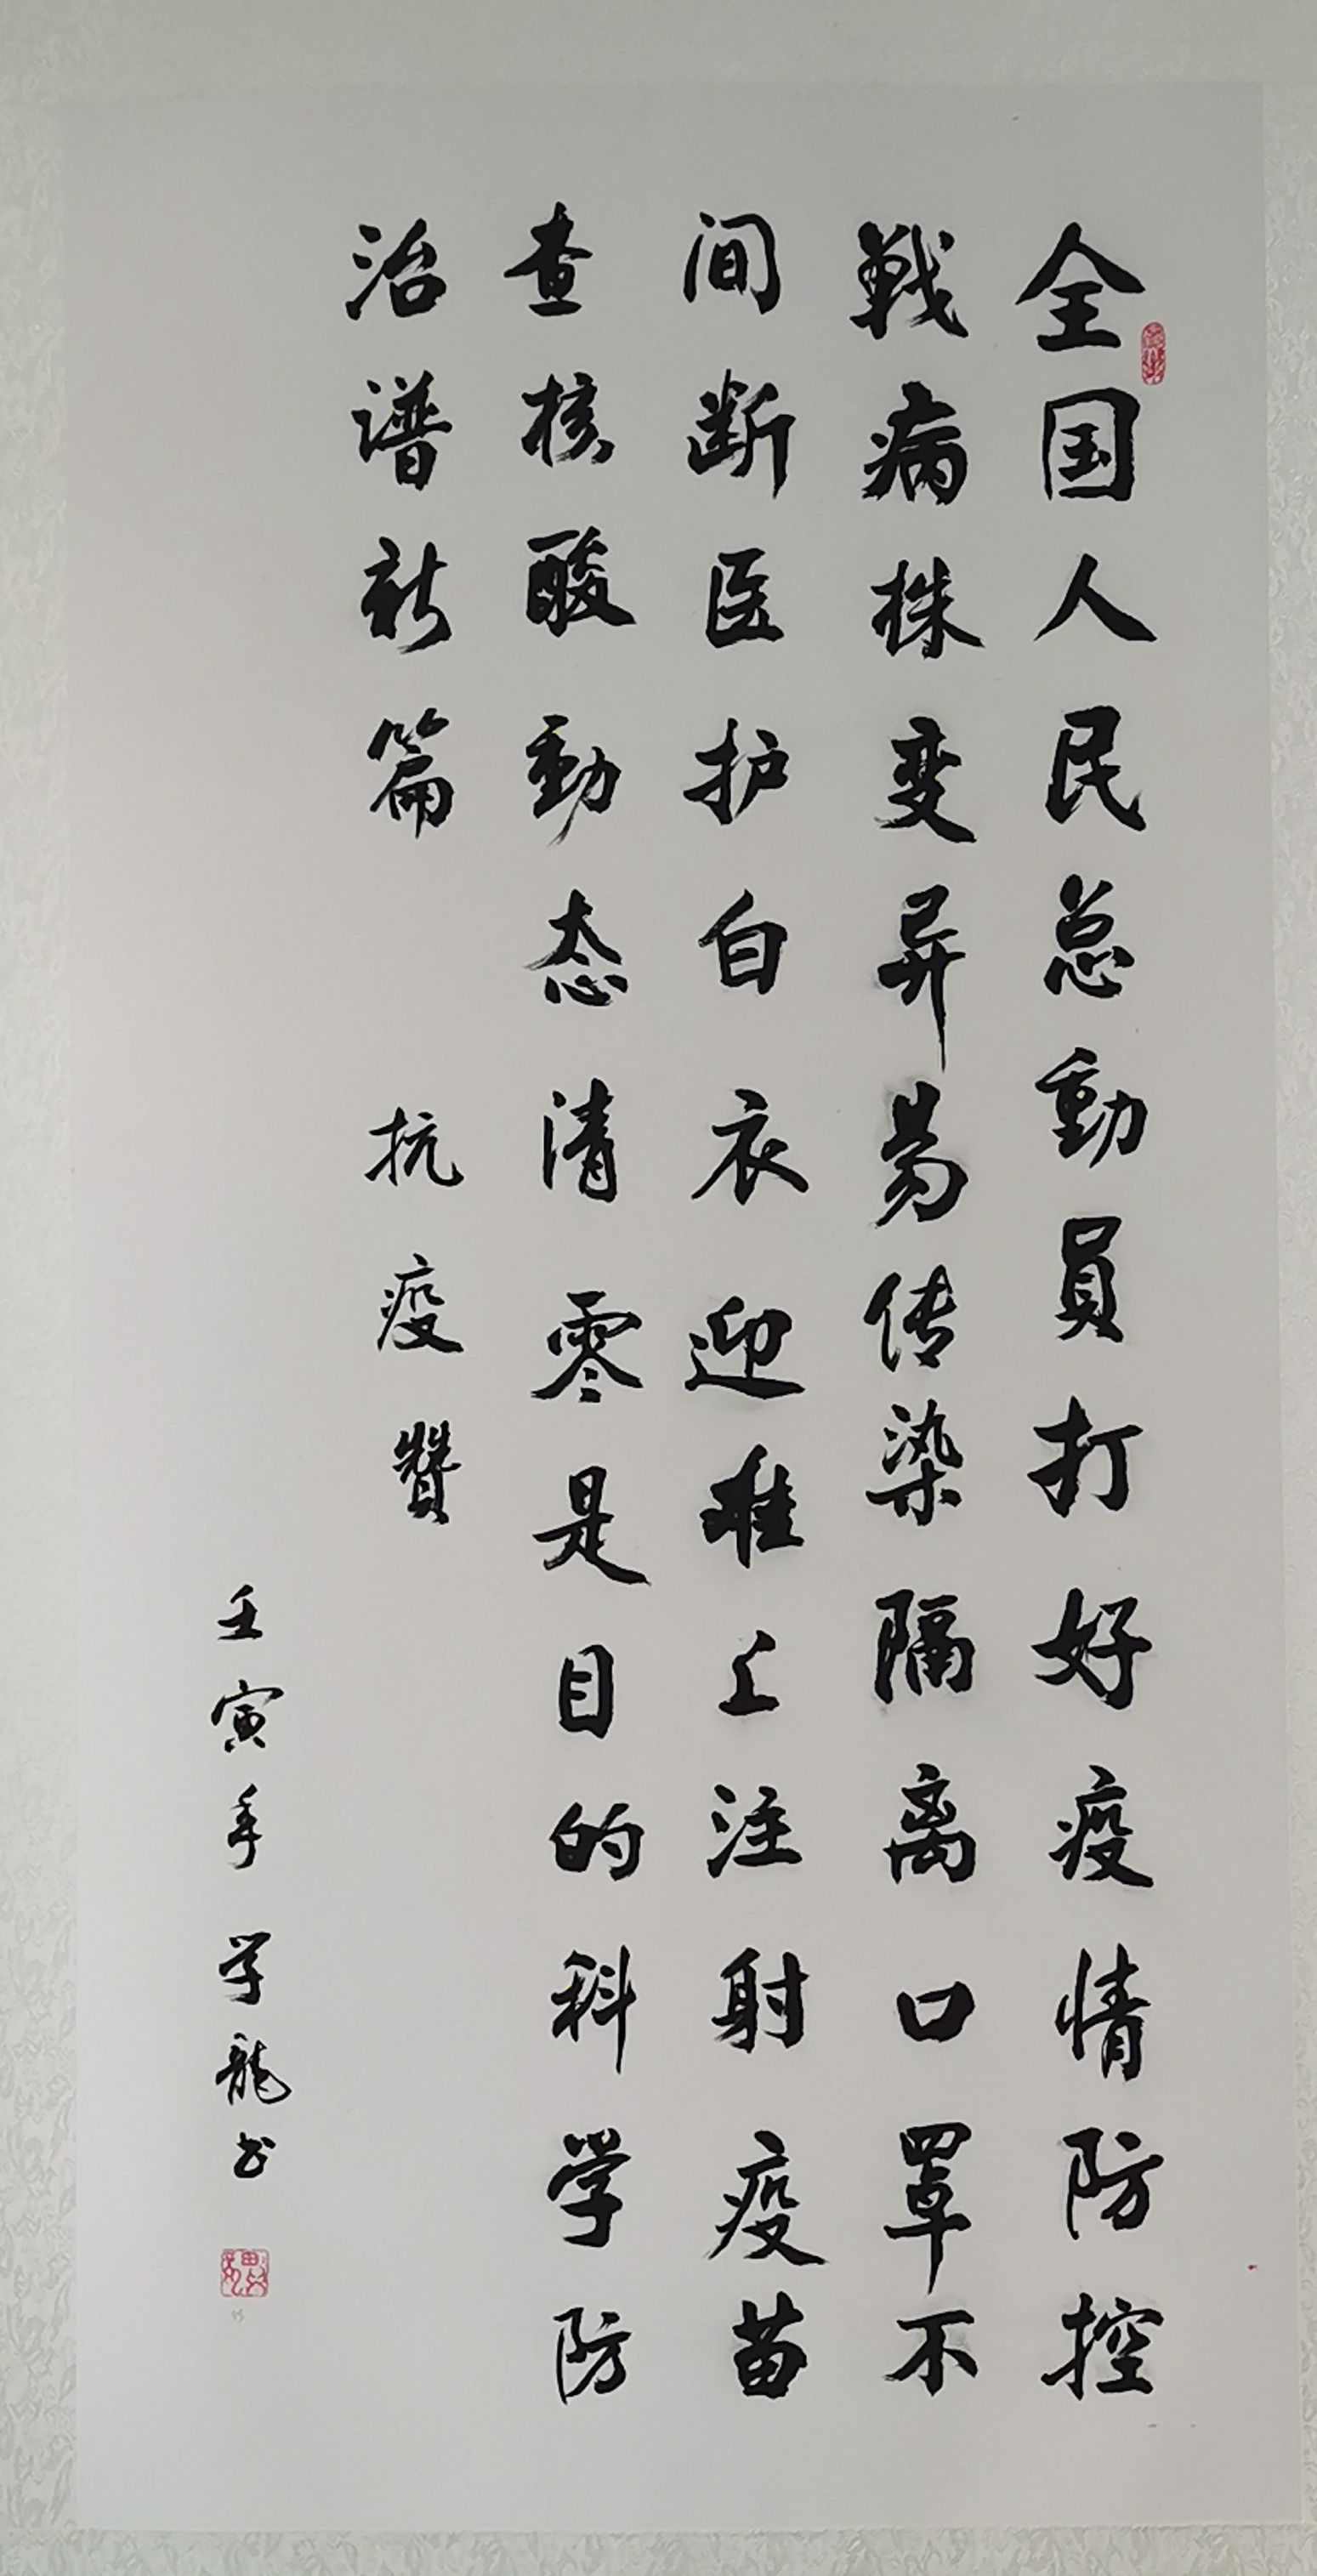 全国人民总動員打好疫情防控
戦病株变异易传染隔离口罩不
间断医护白衣迎难上注射疫苗
查核酸動态清零是目的科学防
治谱新篇 抗疫贊
壬寅年 学龍书